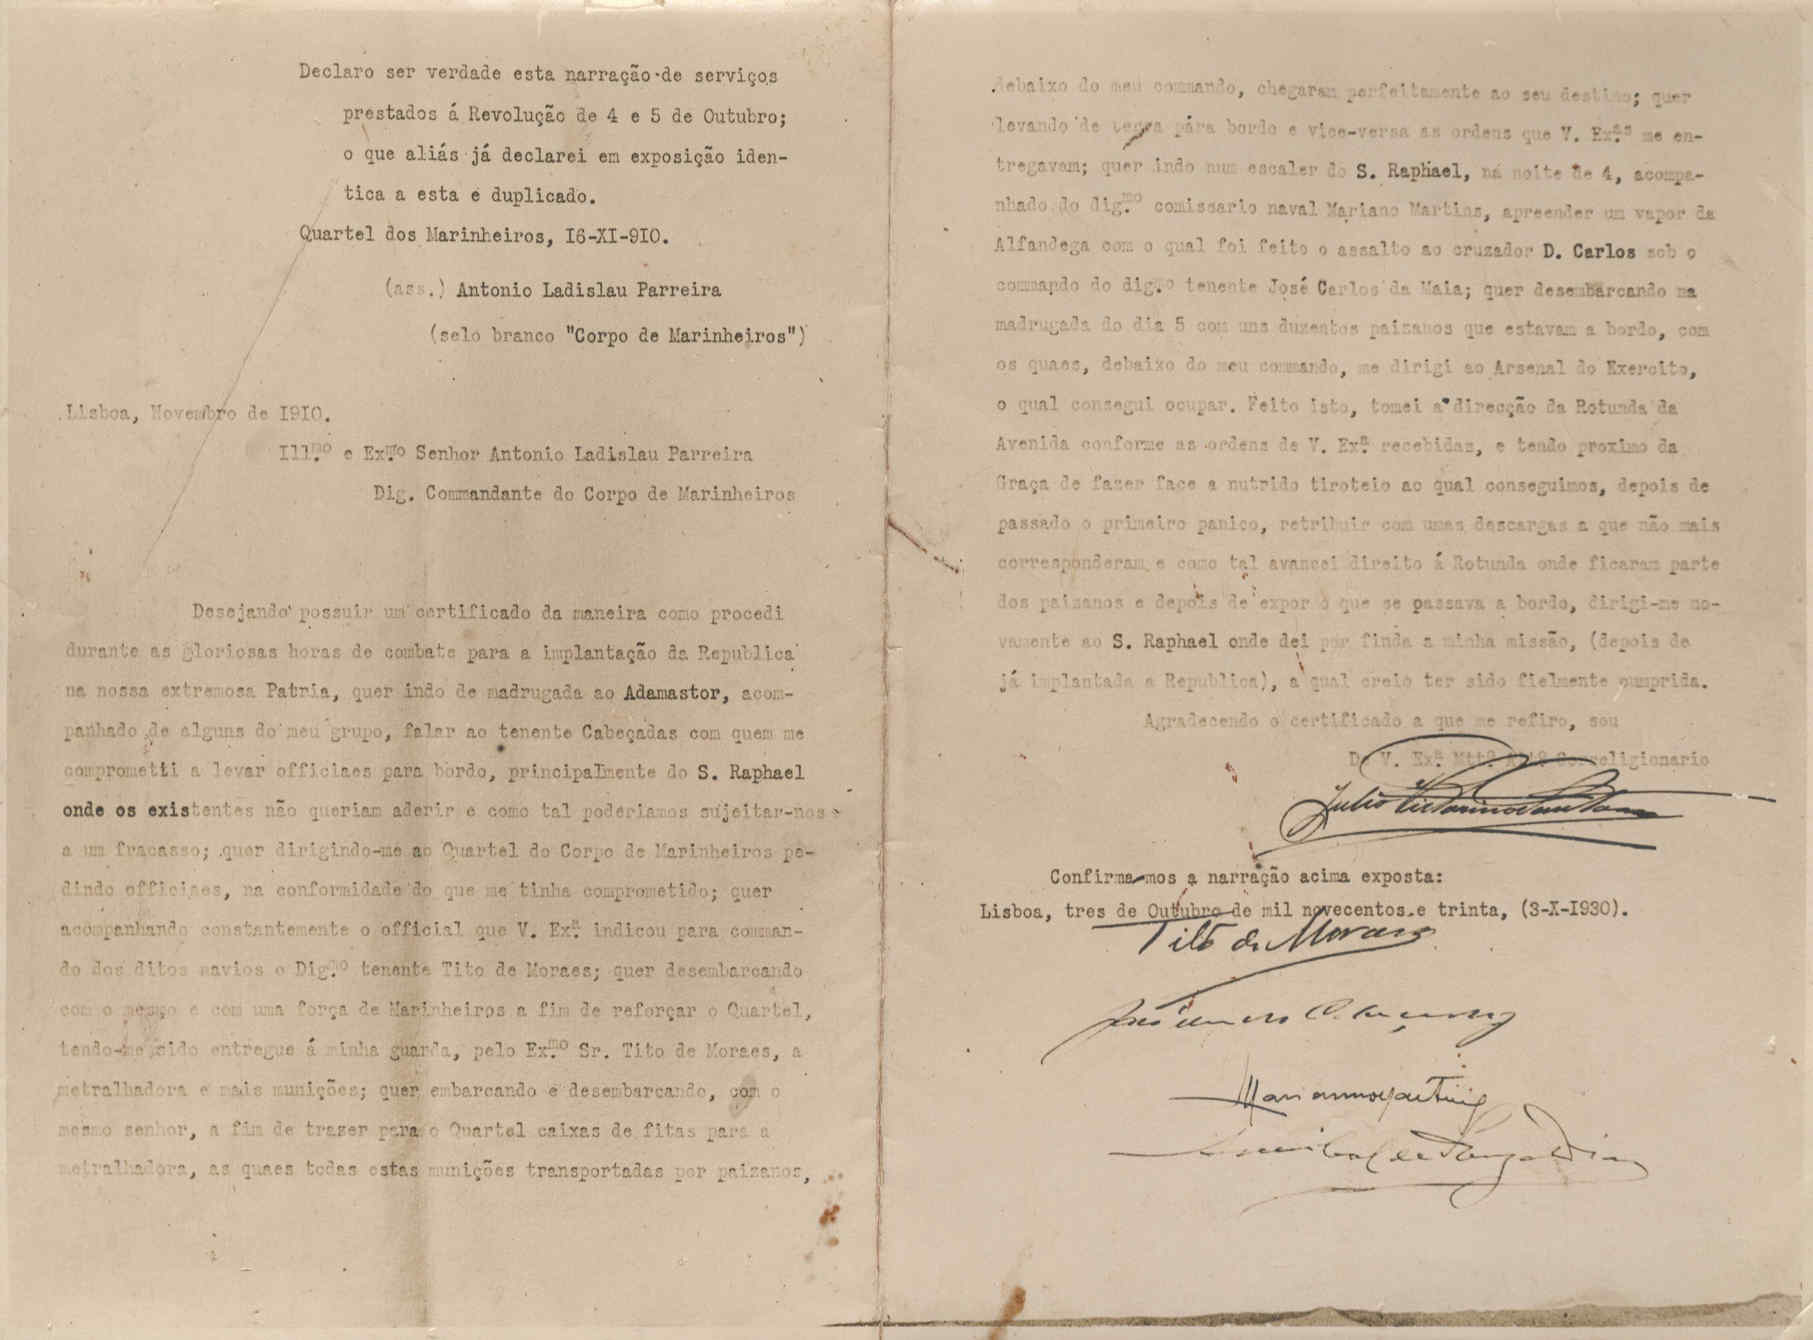 Declaro ser verdade esta narração de serviços
prestados á Revolução de 4 e 5 de Outubro;
o que aliás já declarei em exposição iden-
tica a esta e duplicado.
Quartel dos Marinheiros, I6-XI-9I0.
(ass.) Antonio Ladislau Parreira
(selo branco "Corpo de Marinheiros")
Lisboa, Novembro de I9I0.
Ill.mo e Ex.mo Senhor Antonio Ladislau Parreira
Dig. Commandante do Corpo de Marinheiros
Desejando possuir um certificado da maneira como procedi
durante as gloriosas horas de combate para a implantação da Republica
na nossa extremosa Patria, quer indo de madrugada ao Adamastor, acom-
panhado de alguns do meu grupo, falar ao tenente Cabeçadas com quem me
comprometti a levar officiaes para bordo, principalmente do S. Raphael
onde os existentes não queriam aderir e como tal poderiamos sujeitar-nos
a um fracasso; quer dirigindo-me ao Quartel do Corpo de Marinheiros pe-
dindo officiaes, na conformidade do que me tinha comprometido; quer
acompanhando constantemente o official que V. Ex.ª indicou para comman-
do dos ditos navios o Dig.mo tenente Tito de Moraes; quer desembarcando
com o mesmo e com uma força de Marinheiros a fim de reforçar o Quartel,
tendo-me sido entregue á minha guarda, pelo Ex.mo Sr. Tito de Moraes, a
metralhadora e mais munições; quer embarcando e desembarcando, com o
mesmo senhor, a fim de trazer para o Quartel caixas de fitas para a
metralhadora, as quaes todas estas munições transportadas por paizanos,
debaixo do meu commando, chegaram perfeitamente ao seu destino; quer
levando de terra pára bordo e vice-versa as ordens que V. Ex.ªs me en-
tregavam; quer indo num escaler do S. Raphael, na noite de 4, acompa-
nhado do dig.mo comissario naval Mariano Martins, apreender um vapor da
Alfandega com o qual foi feito o assalto ao cruzador D. Carlos sob o
commando do dig.mo tenente José Carlos da Maia; quer desembarcando na
madrugada do dia 5 com uns duzentos paizanos que estavam a bordo, com
os quaes, debaixo do meu commando, me dirigi ao Arsenal do Exercito,
o qual consegui ocupar. Feito isto, tomei a direcção da Rotunda da
Avenida conforme as ordens de V. Ex.ª recebidas, e tendo proximo da
Graça de fazer face a nutrido tiroteio ao qual conseguimos, depois de
passado o primeiro panico, retribuir com umas descargas a que não mais
corresponderam e como tal avancei direito á Rotunda onde ficaram parte
dos paizanos e depois de expor o que se passava a bordo, dirigi-me no-
vamente ao S. Raphael onde dei por finda a minha missão, (depois de
já implantada a Republica), a qual creio ter sido fielmente cumprida.
Agradecendo o certificado a que me refiro, sou
De V. Ex.ª Mtt.º Correligionario
Julio
Confirma-mos a narração acima exposta:
Lisboa, tres de Outubro de mil novecentos e trinta, (3-X-I930).
Tito de Moraes
Marianno Martins